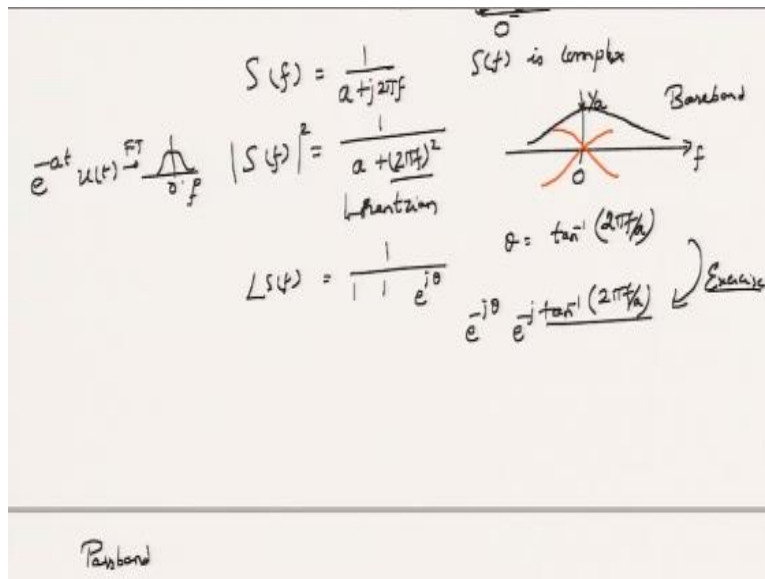 0
S(f) = 1/(a+j2πf)
S(f) is complex
1/a
Baseband
f
0
e^{-at} u(t) →FT
0 f
|S(f)|² = 1/(a+(2πf)²)
Lorentzian
θ = tan⁻¹(2πf/a)
∠S(f) = 1/(| | e^{jθ})
Exercise
e^{-jθ} e^{-j tan⁻¹(2πf/a)}
Passband